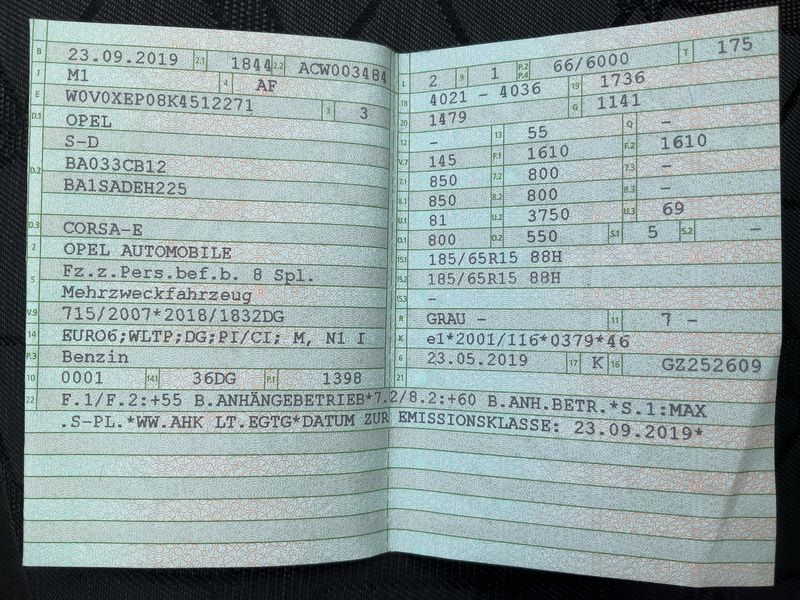 B 23.09.2019 2.1 1844 2.2 ACW003484
J M1 4 AF
E W0V0XEP08K4512271 3 3
D.1 OPEL
S-D
D.2 BA033CB12
BA1SADEH225
D.3 CORSA-E
2 OPEL AUTOMOBILE
5 Fz.z.Pers.bef.b. 8 Spl.
Mehrzweckfahrzeug
V.9 715/2007*2018/1832DG
14 EURO6;WLTP;DG;PI/CI; M, N1 I
P.3 Benzin
10 0001 14.1 36DG P.1 1398
L 2 9 1 P.2 P.4 66/6000 T 175
18 4021 - 4036 19 1736
20 1479 G 1141
12 - 13 55 Q -
V.7 145 F.1 1610 F.2 1610
7.1 850 7.2 800 7.3 -
8.1 850 8.2 800 8.3 -
U.1 81 U.2 3750 U.3 69
O.1 800 O.2 550 S.1 5 S.2 -
15.1 185/65R15 88H
15.2 185/65R15 88H
15.3 -
R GRAU - 11 7 -
K e1*2001/116*0379*46
6 23.05.2019 17 K 16 GZ252609
21
22 F.1/F.2:+55 B.ANHÄNGEBETRIEB*7.2/8.2:+60 B.ANH.BETR.*S.1:MAX
.S-PL.*WW.AHK LT.EGTG*DATUM ZUR EMISSIONSKLASSE: 23.09.2019*